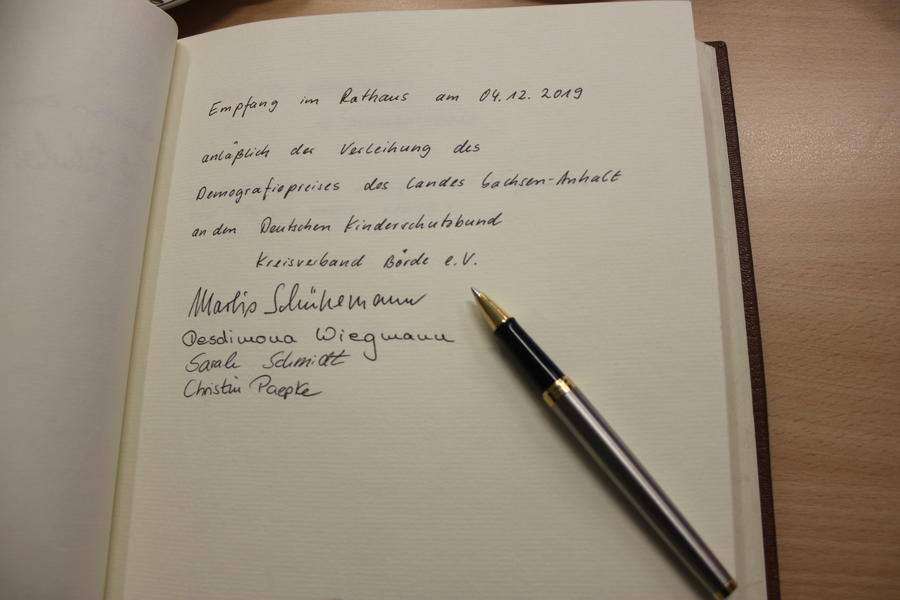 Empfang im Rathaus am 04.12.2019
anläßlich der Verleihung des
Demografiepreises des Landes Sachsen-Anhalt
an den Deutschen Kinderschutzbund
Kreisverband Börde e.V.
Marlis Schünemann
Desdimona Wiegmann
Sarah Schmidt
Christin Paepke